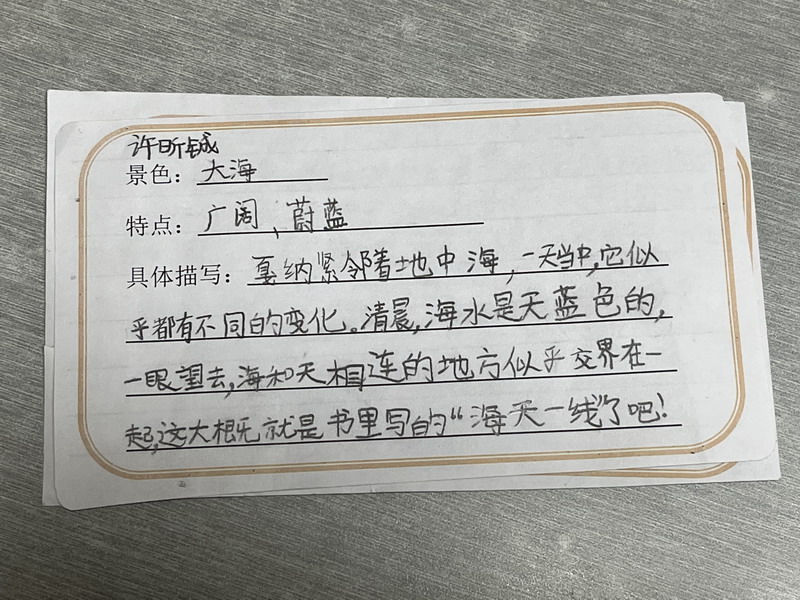 许昕铖
景色：大海
特点：广阔，蔚蓝
具体描写：戛纳紧邻着地中海，一天当中，它似
乎都有不同的变化。清晨，海水是天蓝色的，
一眼望去，海和天相连的地方似乎交界在一
起，这大概就是书里写的“海天一线”了吧！